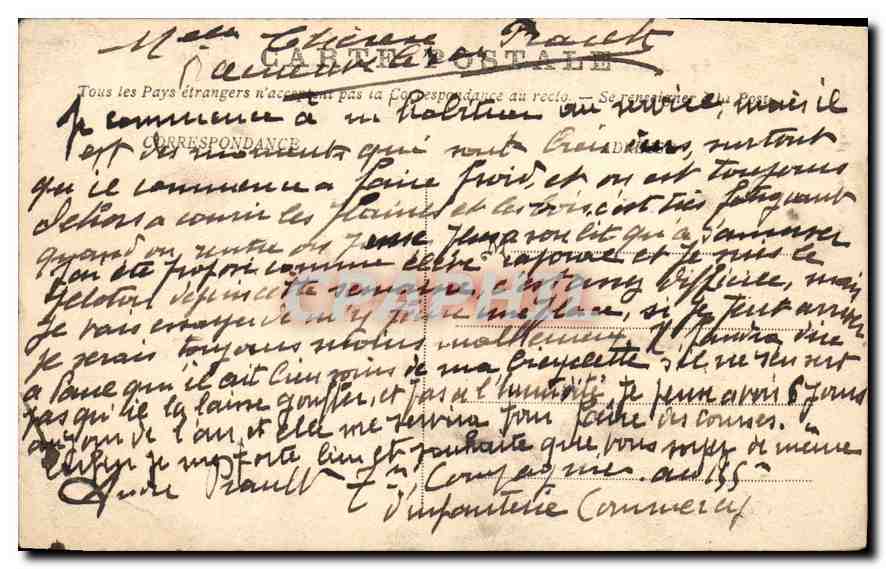 Melle Thérèse Prault
CARTE POSTALE
Tous les Pays étrangers n'acceptent pas la Correspondance au recto. — Se renseigner à la Poste
Je commence à m'habituer au service, mais il
CORRESPONDANCE ADRESSE
est des moments qui sont durs, surtout
qu'il commence a faire froid, et on est toujours
dehors a courir les plaines et les bois, c'est très fatiguant
quand on rentre on pense plus a son lit qu'à s'amuser
J'ai été proposé comme élève caporal et je suis le
peloton depuis cette semaine, c'est assez difficile, mais
je vais essayer d'y faire une place, si je peut arriver
je serais toujours moins malheureux, Il faudra dire
a Paul qu'il ait bien soins de ma bicyclette s'il ne s'en sert
pas qu'il la laisse gonfler, et pas a l'humidité, je pense avoir 6 jours
au jour de l'an, et elle me servira pour faire des courses.
Enfin je me porte bien et souhaite que vous soyez de même
André Prault 7e Compagnie au 155e
d'infanterie Commercy
CPAPHIL